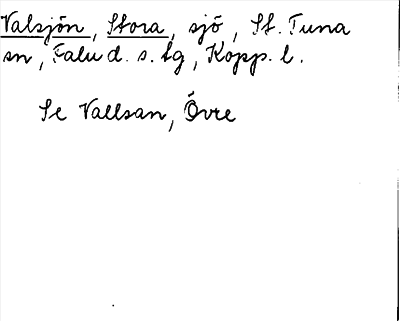 Valsjön, Stora, sjö, St. Tuna
sn, Falu d. s. tg, Kopp. l.
Se Vallsan, Övre